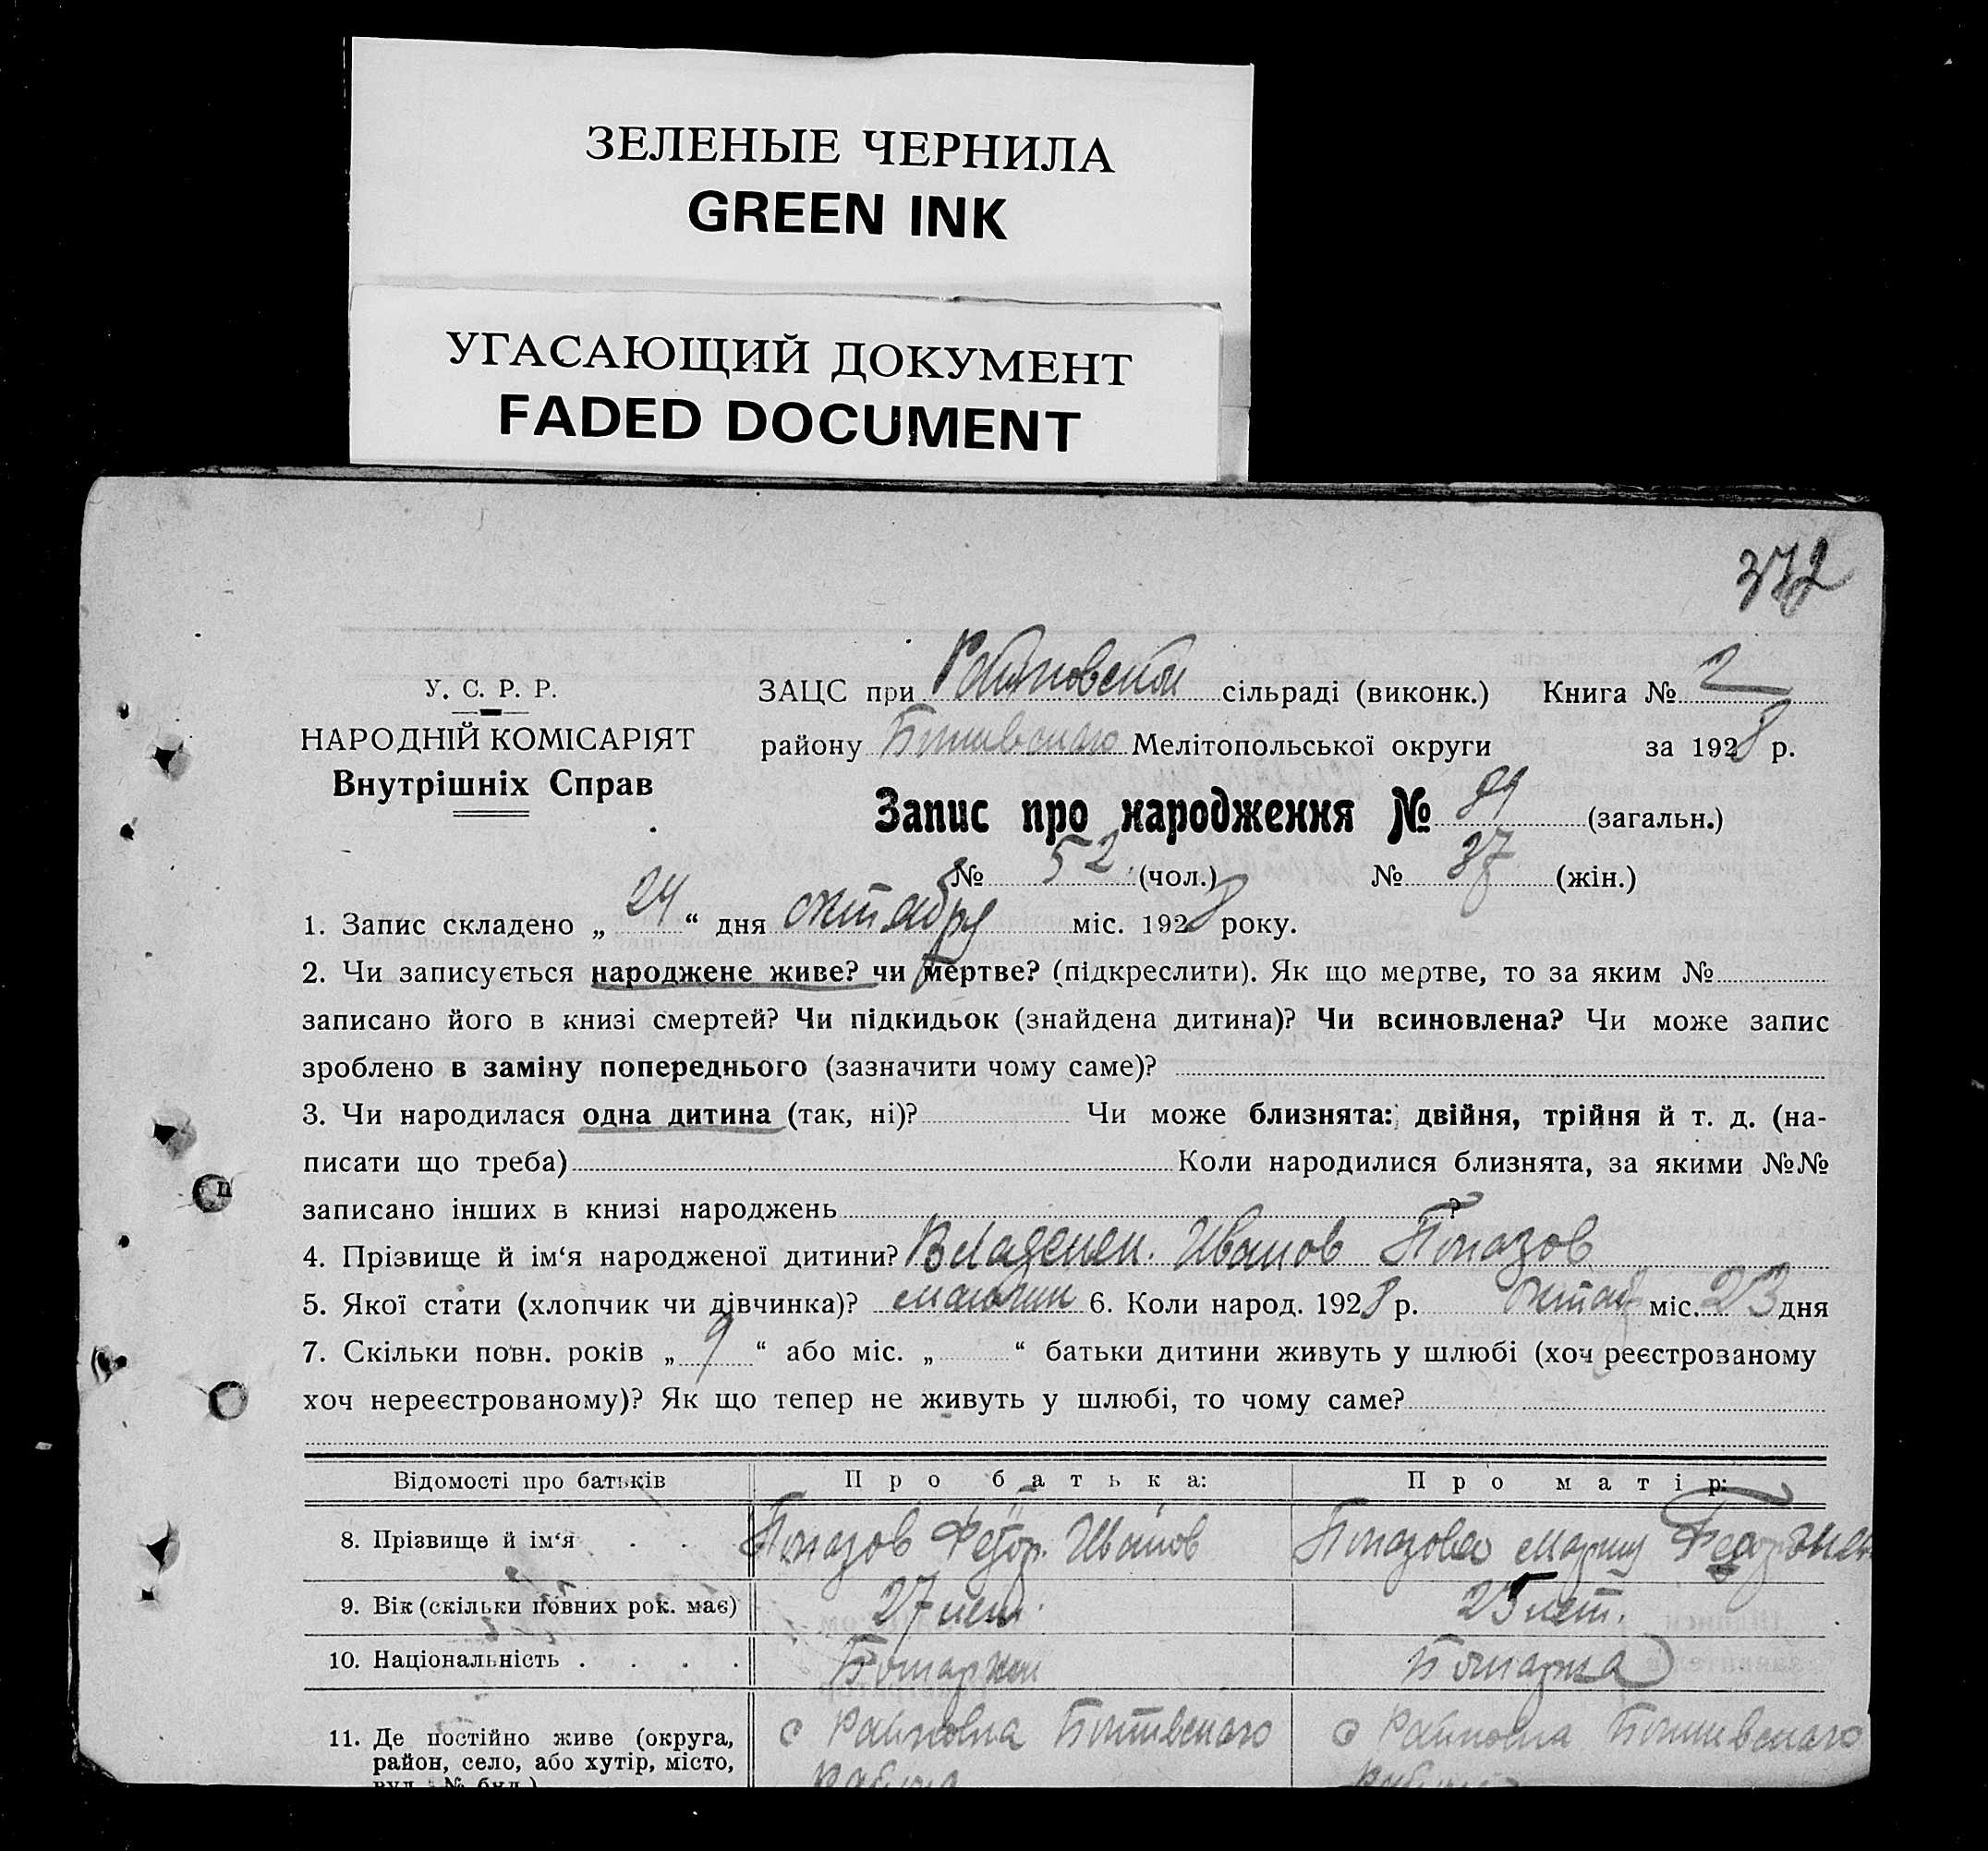 ЗЕЛЕНЫЕ ЧЕРНИЛА
GREEN INK
УГАСАЮЩИЙ ДОКУМЕНТ
FADED DOCUMENT
372
У. С. Р. Р.
НАРОДНІЙ КОМІСАРІЯТ
Внутрішніх Справ
ЗАЦС при Райновском сільраді (виконк.) Книга № 2
району Ботиевского Мелітопольської округи за 1928 р.
Запис про народження № 89 (загальн.)
№ 52 (чол.) № 37 (жін.)
1. Запис складено „ 24 “ дня октября міс. 1928 року.
2. Чи записується народжене живе? чи мертве? (підкреслити). Як що мертве, то за яким №
записано його в книзі смертей? Чи підкидьок (знайдена дитина)? Чи всиновлена? Чи може запис
зроблено в заміну попереднього (зазначити чому саме)?
3. Чи народилася одна дитина (так, ні)? Чи може близнята: двійня, трійня й т. д. (на-
писати що треба) Коли народилися близнята, за якими №№
записано інших в книзі народжень ?
4. Прізвище й ім‘я народженої дитини? Иванов
5. Якої стати (хлопчик чи дівчинка)? 6. Коли народ. 1928 р. октяб міс. 23 дня
7. Скільки повн. років „ 9 “ або міс. „ “ батьки дитини живуть у шлюбі (хоч реєстрованому
хоч нереєстрованому)? Як що тепер не живуть у шлюбі, то чому саме?
Відомості про батьків Про батька: Про матір:
8. Прізвище й ім‘я . . Федор. Иванов
9. Вік (скільки повних рок. має) 27 лет. 25 лет.
10. Національність . . . . Болгарин Болгарка
11. Де постійно живе (округа, с Райновка Ботиевского с Райновка Ботиевского
район, село, або хутір, місто, района района
вул., № буд.)